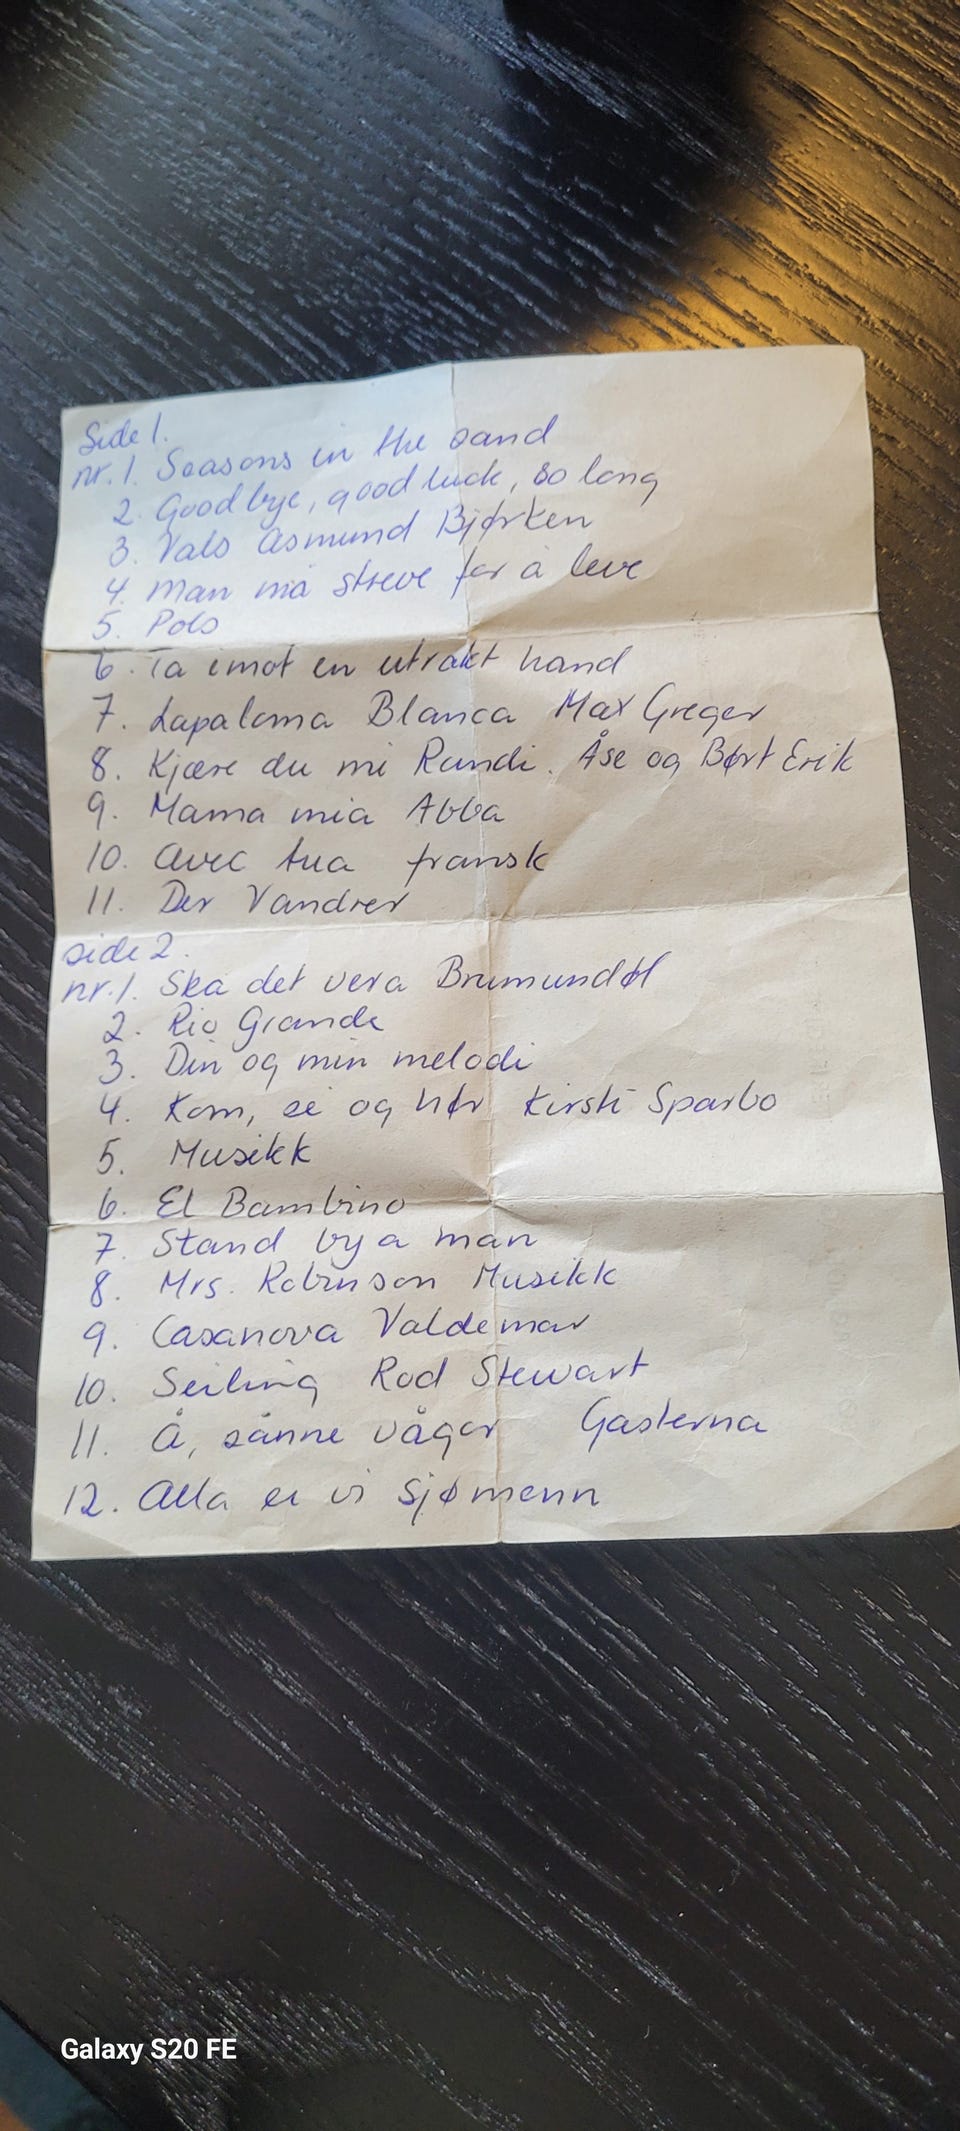 Side 1.
nr. 1. Seasons in the sand
2. Good bye, good luck, so long
3. Vals Asmund Bjørken
4. Man må streve for å leve
5. Polo
6. Ta imot en utrakt hand
7. Lapaloma Blanca Max Greger
8. Kjære du mi Randi. Åse og Børt Erik
9. Mama mia Abba
10. Avec tua fransk
11. Der Vandrer
side 2.
nr. 1. Ska det vera Brumundøl
2. Rio Grande
3. Din og min melodi
4. Kom, se og hør Kirsti Sparbo
5. Musikk
6. El Bambino
7. Stand by a man
8. Mrs. Robinson Musikk
9. Casanova Valdemar
10. Seiling Rod Stewart
11. Å, sånne vågor Gasterna
12. Alla er vi sjømenn
Galaxy S20 FE